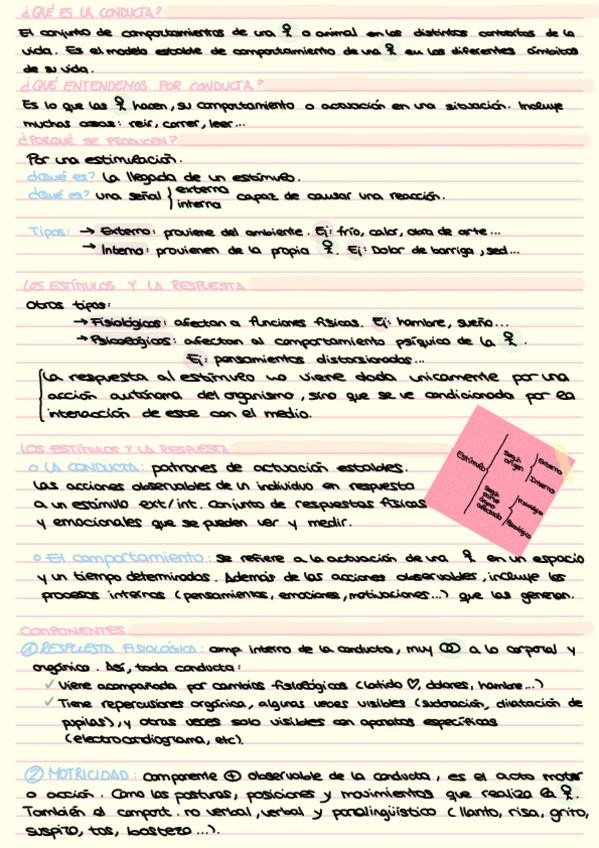 ¿QUÉ ES LA CONDUCTA?
El conjunto de comportamientos de una o animal en los distintos contextos de la
vida. Es el modelo estable de comportamiento de una en los diferentes ámbitos
de su vida.
¿QUÉ ENTENDEMOS POR CONDUCTA?
Es lo que las hacen, su comportamiento o actuación en una situación. Incluye
muchas cosas: reir, correr, leer...
¿PORQUÉ SE PRODUCEN?
Por una estimulación.
¿Qué es? La llegada de un estímulo.
¿Qué es? una señal { externa
interna capaz de causar una reacción.
Tipos: → Externo: proviene del ambiente. Ej: frío, calor, obra de arte...
→ Interno: provienen de la propia . Ej: Dolor de barriga, sed...
LOS ESTÍMULOS Y LA RESPUESTA
Otros tipos:
→ Fisiológicos: afectan a funciones físicas. Ej: hambre, sueño...
→ Psicológicos: afectan al comportamiento psíquico de la .
Ej: pensamientos distorsionados...
La respuesta al estímulo no viene dada unicamente por una
acción autónoma del organismo, sino que se ve condicionada por la
interacción de este con el medio.
Estímulo
Según origen
Externo
Interno
Según parte
afectada
Fisiológico
Psicológico
LOS ESTÍMULOS Y LA RESPUESTA
o LA CONDUCTA: patrones de actuación estables.
Las acciones observables de un individuo en respuesta
a un estímulo ext/int. Conjunto de respuestas físicas
y emocionales que se pueden ver y medir.
o El comportamiento: se refiere a la actuación de una en un espacio
y un tiempo determinados. Además de las acciones observables, incluye los
procesos internos (pensamientos, emociones, motivaciones...) que las generan.
COMPONENTES
① RESPUESTA FISIOLÓGICA: comp interno de la conducta, muy a lo corporal y
orgánico. Así, toda conducta:
✓ Viene acompañada por cambios fisiológicos (latido ♡, dolores, hambre...)
✓ Tiene repercusiones orgánica, algunas veces visibles (sudoración, dilatación de
pupilas), y otras veces solo visibles con aparatos específicos
(electrocardiograma, etc).
② MOTRICIDAD: componente ⊕ observable de la conducta, es el acto motor
o acción. Como las posturas, posiciones y movimientos que realiza la .
También el comport. no verbal, verbal y paralingüístico (llanto, risa, grito,
suspiro, tos, bostezo...).